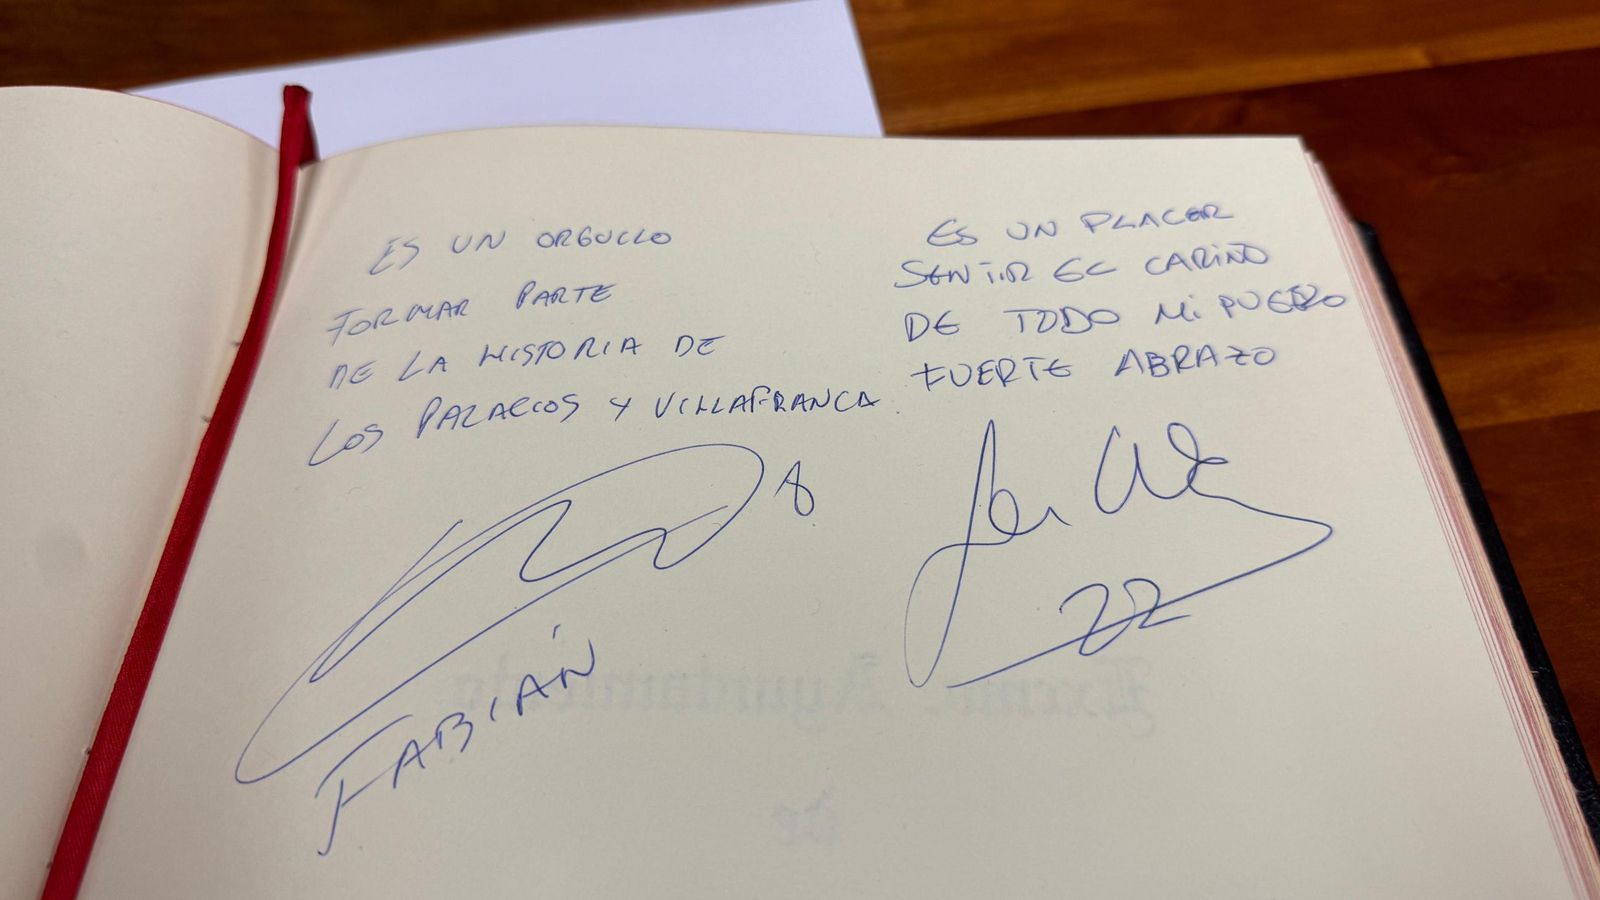 ES UN ORGULLO
FORMAR PARTE
DE LA HISTORIA DE
LOS PALACIOS Y VILLAFRANCA.
8
FABIÁN
ES UN PLACER
SENTIR EL CARIÑO
DE TODO MI PUEBLO
FUERTE ABRAZO
22
Excmo. Ayuntamiento
de